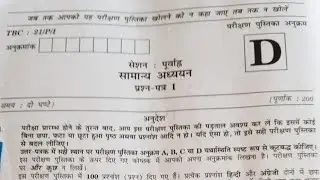 जब तक आपको यह परीक्षण पुस्तिका खोलने को न कहा जाए तब तक न खोलें
TBC : 21/PI
परीक्षण पुस्तिका अनुक्रम
अनुक्रमांक
D
सेशन : पूर्वाह्न
सामान्य अध्ययन
प्रश्न-पत्र I
समय : दो घण्टे
पूर्णांक : 200
अनुदेश
परीक्षा प्रारम्भ होने के तुरन्त बाद, आप इस परीक्षण पुस्तिका की पड़ताल अवश्य कर लें कि इसमें कोई
बिना छपा, फटा या छूटा हुआ पृष्ठ अथवा प्रश्नांश आदि न हो। यदि ऐसा हो, तो इसे सही परीक्षण पुस्तिका
से बदल लीजिए।
उत्तर पत्रक में सही स्थान पर परीक्षण पुस्तिका अनुक्रम A, B, C या D यथास्थिति स्पष्ट रूप से कूटबद्ध कीजिए।
इस परीक्षण पुस्तिका के ऊपर दिए गए कोष्ठक में आपको अपना अनुक्रमांक लिखना है। परीक्षण पुस्तिका
पर और कुछ न लिखें।
इस परीक्षण पुस्तिका में 100 प्रश्नांश दिए गए हैं। प्रत्येक प्रश्नांश हिन्दी और अंग्रेजी दोनों में छपा